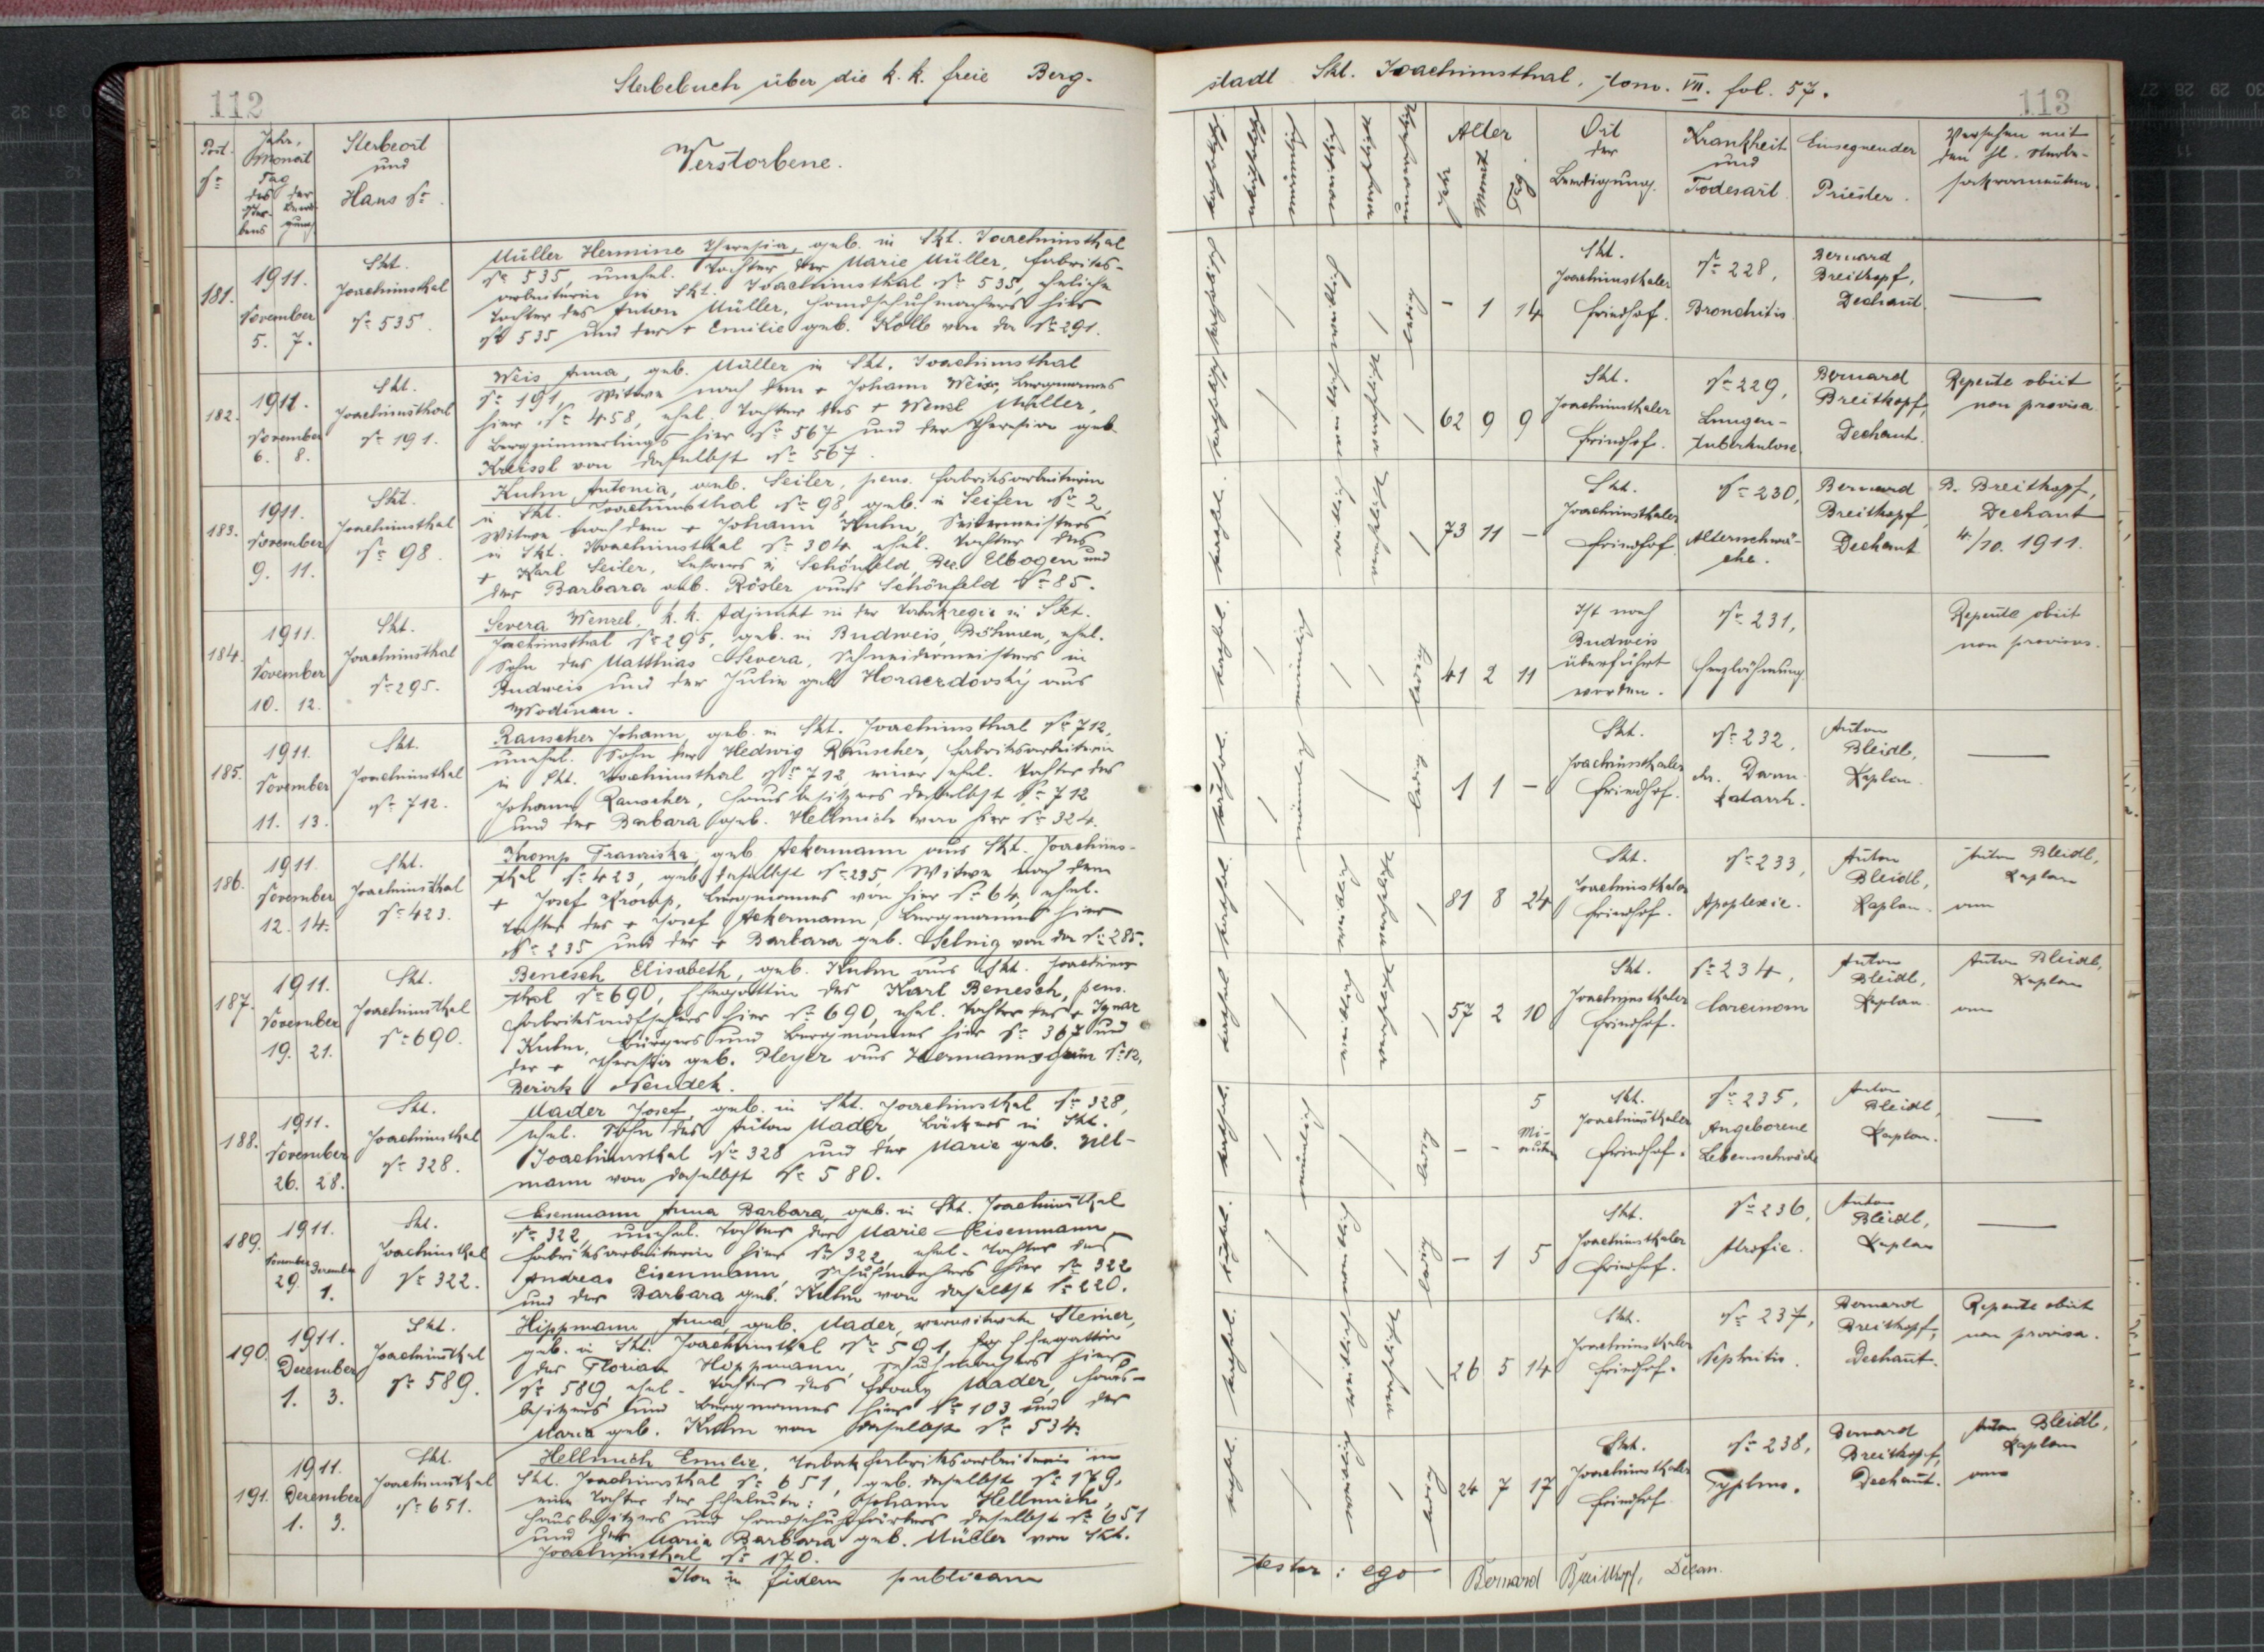 112
Sterbebuch über die k. k. freie Berg-
Post. Nr
Jahr, Monat Tag
des Ster-bens
der Beerdi-gung
Sterbeort
und
Haus Nr
Verstorbene.
181.
1911.
November
5. 7.
Skt.
Joachimsthal
Nr 535.
Müller Hermine Theresia, geb. in Skt. Joachimsthal
Nr 535, unehel. Tochter der Marie Müller, Fabriks-
arbeiterin in Skt. Joachimsthal Nr 535, eheliche
Tochter des Anton Müller, Handschuhmachers hier
Nr 535 und der + Emilie geb. Kolb von da Nr 291.
182.
1911.
November
6. 8.
Skt.
Joachimsthal
Nr 191.
Weis Anna, geb. Müller in Skt. Joachimsthal
Nr 191, Witwe nach dem + Johann Weis, Bergmannes
hier Nr 458, ehel. Tochter des + Wenzl Müller,
Bergzimmerlings hier Nr 567 und der Theresia geb.
Kreissl von daselbst Nr 567.
183.
1911.
November
9. 11.
Skt.
Joachimsthal
Nr 98.
Kuhn Antonia, geb. Seiler, pens. Fabriksarbeiterin
in Skt. Joachimsthal Nr 98, geb. in Seifen Nr 2,
Witwe nach dem + Johann Kuhn, Seilermeisters
in Skt. Joachimsthal Nr 304 ehel. Tochter des
+ Karl Seiler, Lehrers in Schönfeld, Bez. Elbogen und
der Barbara geb. Rösler aus Schönfeld Nr 85.
184.
1911.
November
10. 12.
Skt.
Joachimsthal
Nr 295.
Severa Wenzel, k. k. Adjunkt in der Tabakregie in Skt.
Joachimsthal Nr 295, geb. in Budweis, Böhmen, ehel.
Sohn des Matthias Severa, Schneidermeisters in
Budweis und der Julie geb. Horaerdovský aus
Wodinan.
185.
1911.
November
11. 13.
Skt.
Joachimsthal
Nr 712.
Rauscher Johann, geb. in Skt. Joachimsthal Nr 712,
unehel. Sohn der Hedwig Rauscher, Fabriksarbeiterin
in Skt. Joachimsthal Nr 712, einer ehel. Tochter des
Johann Rauscher, Hausbesitzers daselbst Nr 712
und der Barbara geb. Hellmich von hier Nr 324.
186.
1911.
November
12. 14.
Skt.
Joachimsthal
Nr 423.
Kromp Franziska, geb. Ackermann aus Skt. Joachims-
thal Nr 423, geb. daselbst Nr 235, Witwe nach dem
+ Josef Kromp, Bergmannes von hier Nr 64, ehel.
Tochter des + Josef Ackermann, Bergmannes hier
Nr 235 und der + Barbara geb. Selnig von da Nr 285.
187.
1911.
November
19. 21.
Skt.
Joachimsthal
Nr 690.
Benesch Elisabeth, geb. Kuhn aus Skt. Joachims-
thal Nr 690, Ehegattin des Karl Benesch, pens.
Fabriksaufsehers hier Nr 690, ehel. Tochter des + Ignaz
Kuhn, Bürgers und Bergmannes hier Nr 367 und
der + Theresia geb. Pleyer aus Hermannsgrün Nr 12,
Bezirk Neudek.
188.
1911.
November
26. 28.
Skt.
Joachimsthal
Nr 328.
Mader Josef, geb. in Skt. Joachimsthal Nr 328,
ehel. Sohn des Anton Mader, Bäckers in Skt.
Joachimsthal Nr 328 und der Marie geb. Ull-
mann von daselbst Nr 580.
189.
1911.
November December
29. 1.
Skt.
Joachimsthal
Nr 322.
Eisenmann Anna Barbara, geb. in Skt. Joachimsthal
Nr 322, unehel. Tochter der Marie Eisenmann,
Fabriksarbeiterin hier Nr 322, ehel. Tochter des
Andreas Eisenmann, Schuhmachers hier Nr 322
und der Barbara geb. Kuhn von daselbst Nr 220.
190.
1911.
December
1. 3.
Skt.
Joachimsthal
Nr 589.
Hippmann Anna, geb. Mader, verwitwete Steiner,
geb. in Skt. Joachimsthal Nr 591, Ehegattin
des Florian Hippmann, Schuhmachers hier
Nr 589, ehel. Tochter des Franz Mader, Haus-
besitzers und Bergmannes hier Nr 103 und der
Maria geb. Kuhn von daselbst Nr 534.
191.
1911.
December
1. 3.
Skt.
Joachimsthal
Nr 651.
Hellmich Emilie, Tabakfabriksarbeiterin in
Skt. Joachimsthal Nr 651, geb. daselbst Nr 179,
eine Tochter der Eheleute: Johann Hellmich,
Hausbesitzers und Handschuhfärbers daselbst Nr 651
und der Maria Barbara geb. Müller von Skt.
Joachimsthal Nr 170.
in fidem publicam
stadt Skt. Joachimsthal, tom. VII. fol. 57.
113
katholisch
männlich
weiblich
verehelicht
unverehelicht
Alter
Jahr
Monat
Tag
Ort
der
Beerdigung.
Krankheit
und
Todesart
Einsegnender
Priester.
Versehen mit
den hl. Sterbe-
sakramenten.
katholisch
weiblich
ledig
- 1 14
Skt.
Joachimsthaler
Friedhof.
Nr 228,
Bronchitis.
Bernard
Breitkopf,
Dechant.
katholisch
weiblich
verehelicht
62 9 9
Skt.
Joachimsthaler
Friedhof.
Nr 229,
Lungen-
tuberkulose.
Bernard
Breitkopf,
Dechant.
Repente obiit
non provisa
kathol.
weiblich
verehelicht
73 11 -
Skt.
Joachimsthaler
Friedhof.
Nr 230,
Altersschwä-
che.
Bernard
Breitkopf,
Dechant
B. Breitkopf,
Dechant
4./10. 1911.
kathol.
männlich
ledig
41 2 11
Ist nach
Budweis
überführt
worden.
Nr 231,
Herzlähmung
Repente obiit
non provisus.
kathol.
männlich
ledig
1 1 -
Skt.
Joachimsthaler
Friedhof.
Nr 232,
chr. Darm-
katarrh.
Anton
Bleidl,
Kaplan.
kathol.
weiblich
verehelicht
81 8 24
Skt.
Joachimsthaler
Friedhof.
Nr 233,
Apoplexie.
Anton
Bleidl,
Kaplan.
Anton Bleidl,
Kaplan
kathol.
weiblich
verehelicht
57 2 10
Skt.
Joachimsthaler
Friedhof.
Nr 234,
Carcinom
Anton
Bleidl,
Kaplan
Anton Bleidl,
Kaplan
kathol.
männlich
ledig
- - 5 Mi-nuten
Skt.
Joachimsthaler
Friedhof.
Nr 235,
Angeborene
Lebensschwäche
Anton
Bleidl,
Kaplan.
kathol.
weiblich
ledig
- 1 5
Skt.
Joachimsthaler
Friedhof.
Nr 236,
Atrofie.
Anton
Bleidl,
Kaplan
kathol.
weiblich
verehelicht
26 5 14
Skt.
Joachimsthaler
Friedhof.
Nr 237,
Nephritis.
Bernard
Breitkopf,
Dechant.
Repente obiit
non provisa.
kathol.
weiblich
ledig
24 7 17
Skt.
Joachimsthaler
Friedhof
Nr 238,
Typhus.
Bernard
Breitkopf,
Dechant.
Anton Bleidl,
Kaplan
testor: ego Bernard Breitkopf, Decan.